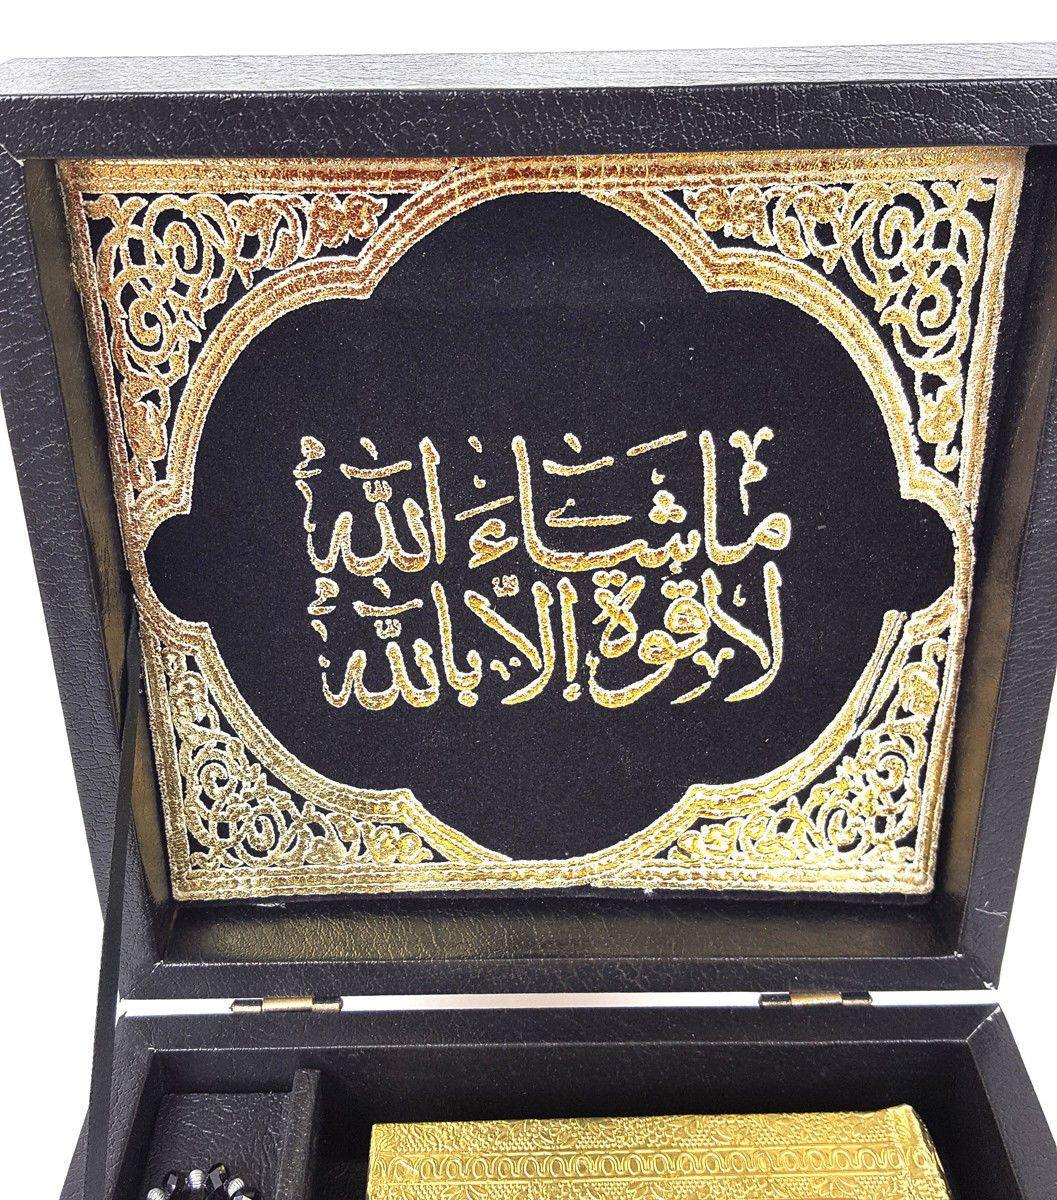 ما شَاءَ اللَّهُ
لا قوة إلّا باللَّهُ